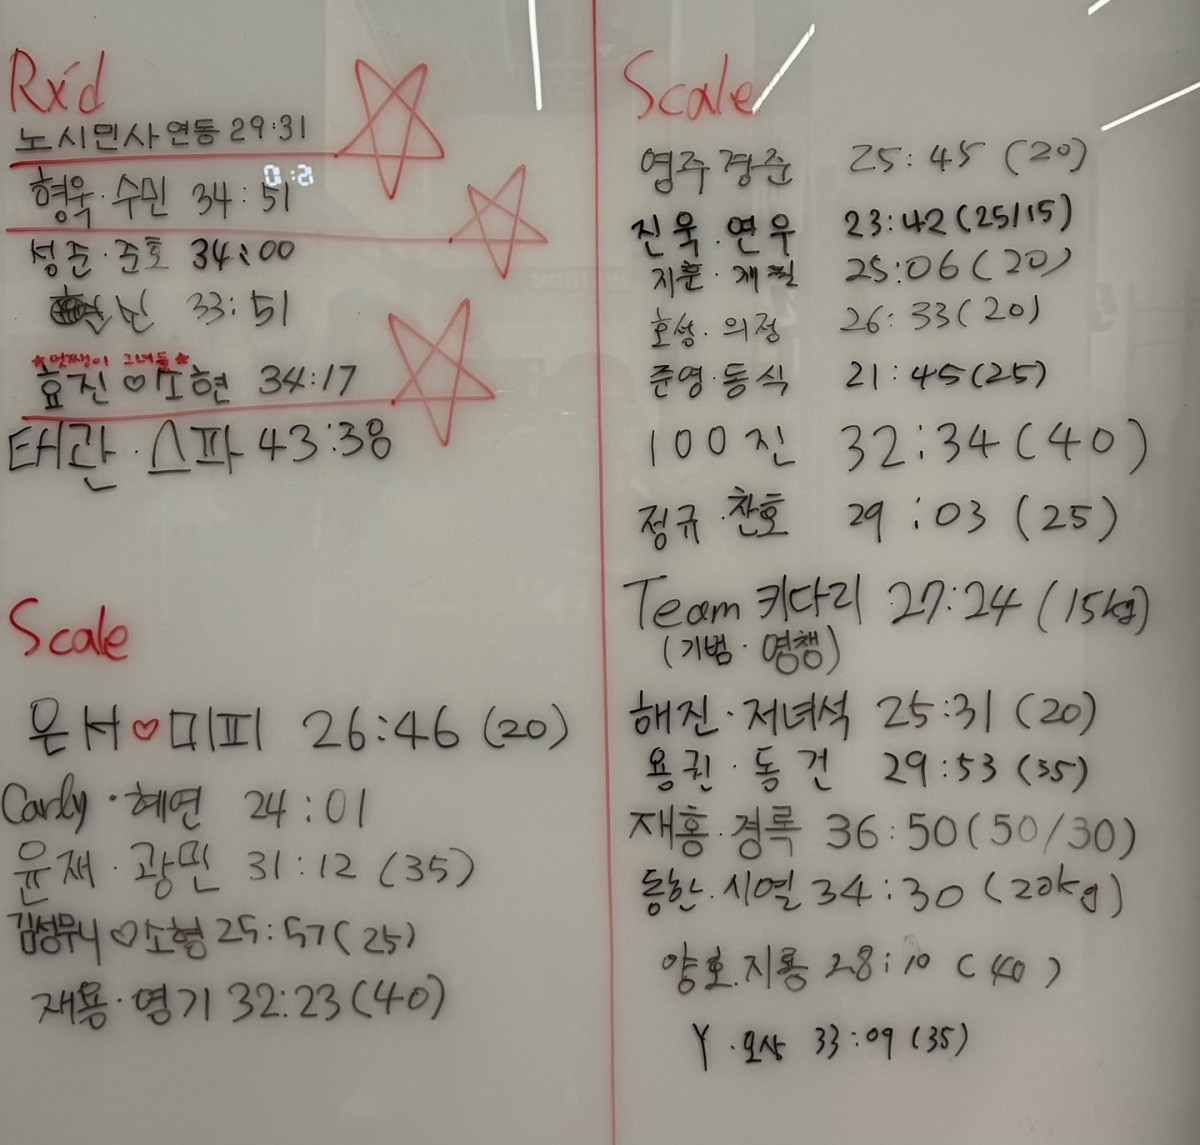 Rx'd
노시민사 연동 29:31
형욱·수민 34:51
성준·준호 34:00
33:51
★멋쨍이 그녀들★
효진♡소현 34:17
태관·스파 43:38
Scale
은서♡미피 26:46 (20)
Carly·혜연 24:01
윤재·광민 31:12 (35)
김성무니♡소형 25:57 (25)
재용·영기 32:23 (40)
Scale
영주 경준 25:45 (20)
진욱·연우 23:42 (25/15)
지훈· 25:06 (20)
호성·의정 26:33 (20)
준영·동식 21:45 (25)
100진 32:34 (40)
정규·찬호 29:03 (25)
Team 키다리 27:24 (15kg)
(기범·영챙)
해진·저녀석 25:31 (20)
용권·동건 29:53 (35)
재홍·경록 36:50 (50/30)
동한·시열 34:30 (20kg)
양호·지룡 28:10 (40)
Y·모상 33:09 (35)